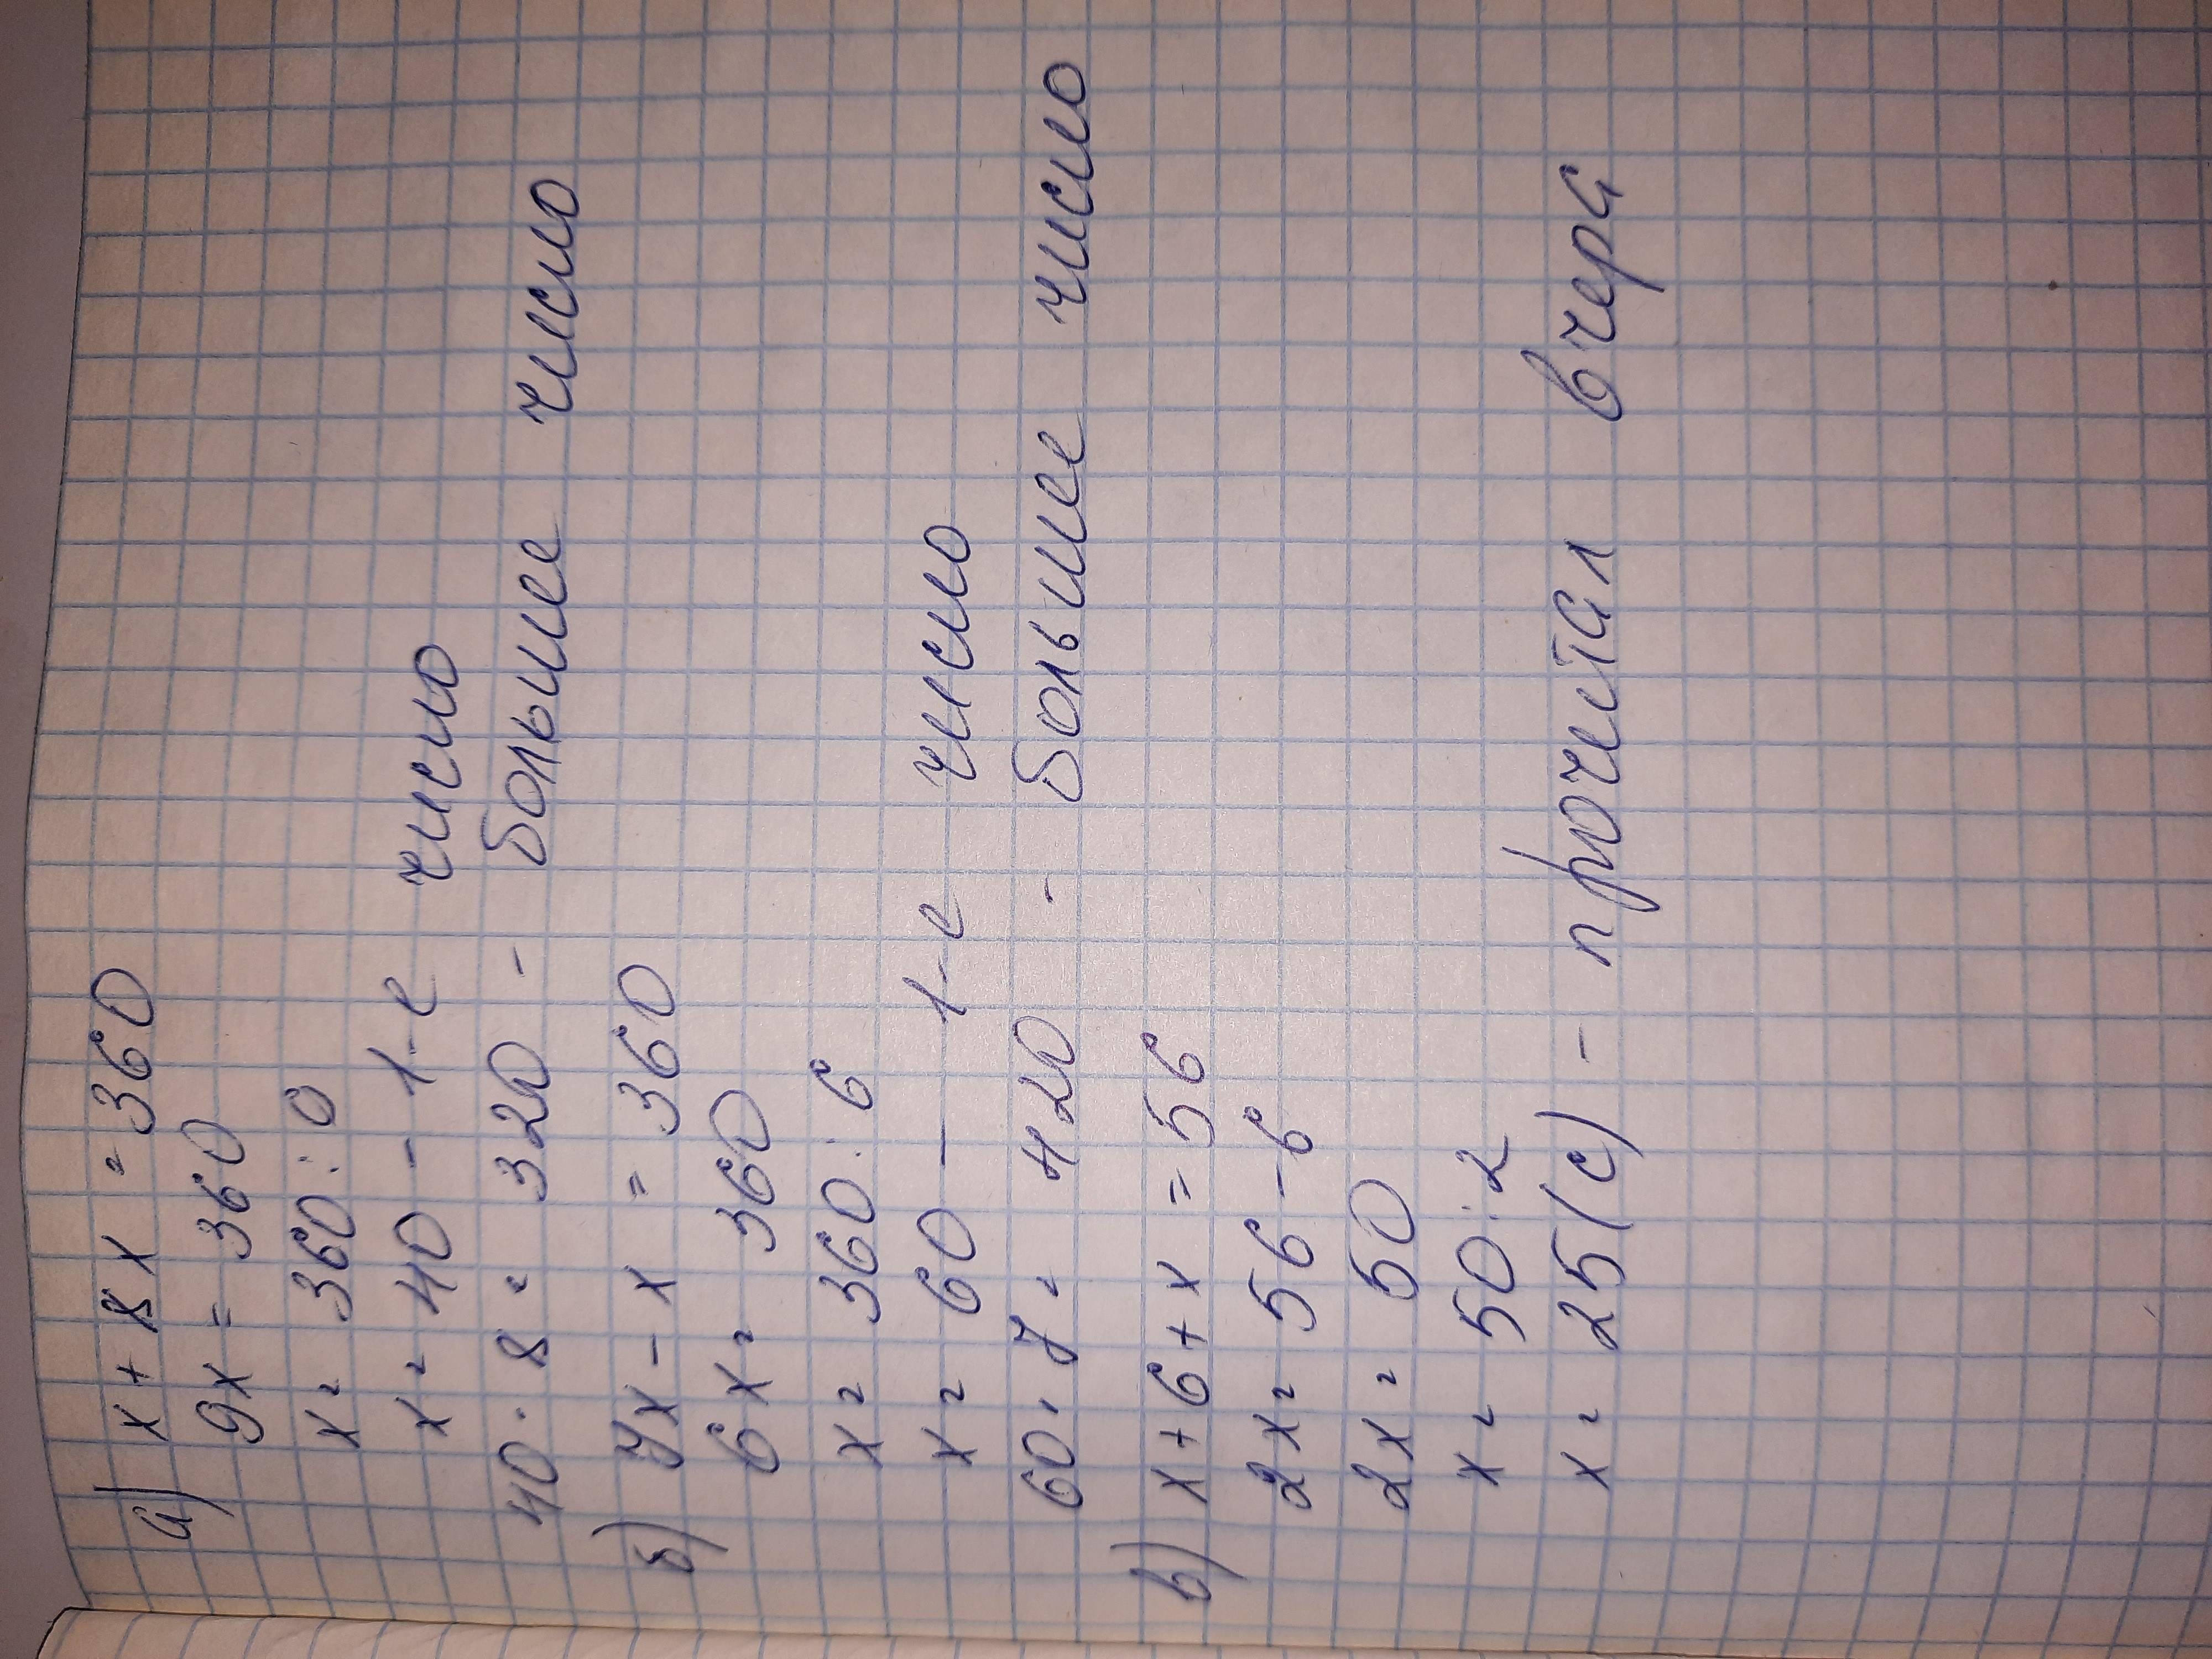 а) x + 8x = 360
9x = 360
x = 360 : 9
x = 40 - 1-е число
40 · 8 = 320 - больше число
б) 7x - x = 360
6x = 360
x = 360 : 6
x = 60 - 1-е число
60 · 7 = 420 - больше число
в) x + 6 + x = 56
2x = 56 - 6
2x = 50
x = 50 : 2
x = 25 (с) - прочитал вчера